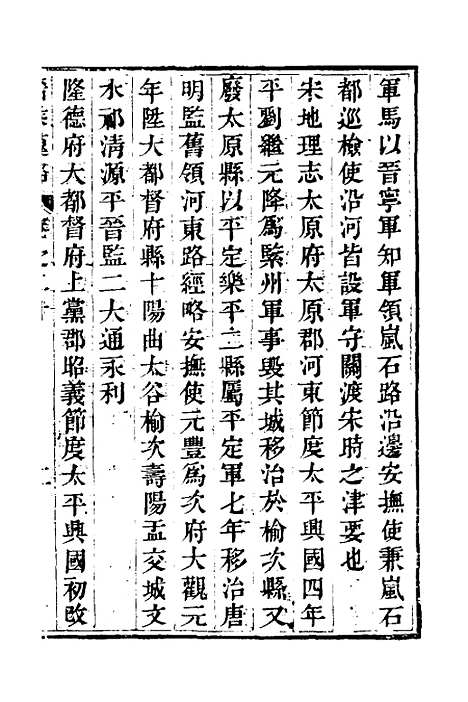 軍馬以晉寧軍知軍領嵐石路沿邊安撫使兼嵐石
都巡檢使沿河皆設軍守關渡宋時之津要也
宋地理志太原府太原郡河東節度太平興國四年
平劉繼元降為緊州軍事毀其城移治於榆次縣又
廢太原縣以平定樂平二縣屬平定軍七年移治唐
明監舊領河東路經略安撫使元豐為次府大觀元
年陞大都督府縣十陽曲太谷榆次壽陽盂交城文
水祁清源平晉監二大通永利
隆德府大都督府上黨郡昭義節度太平興國初改